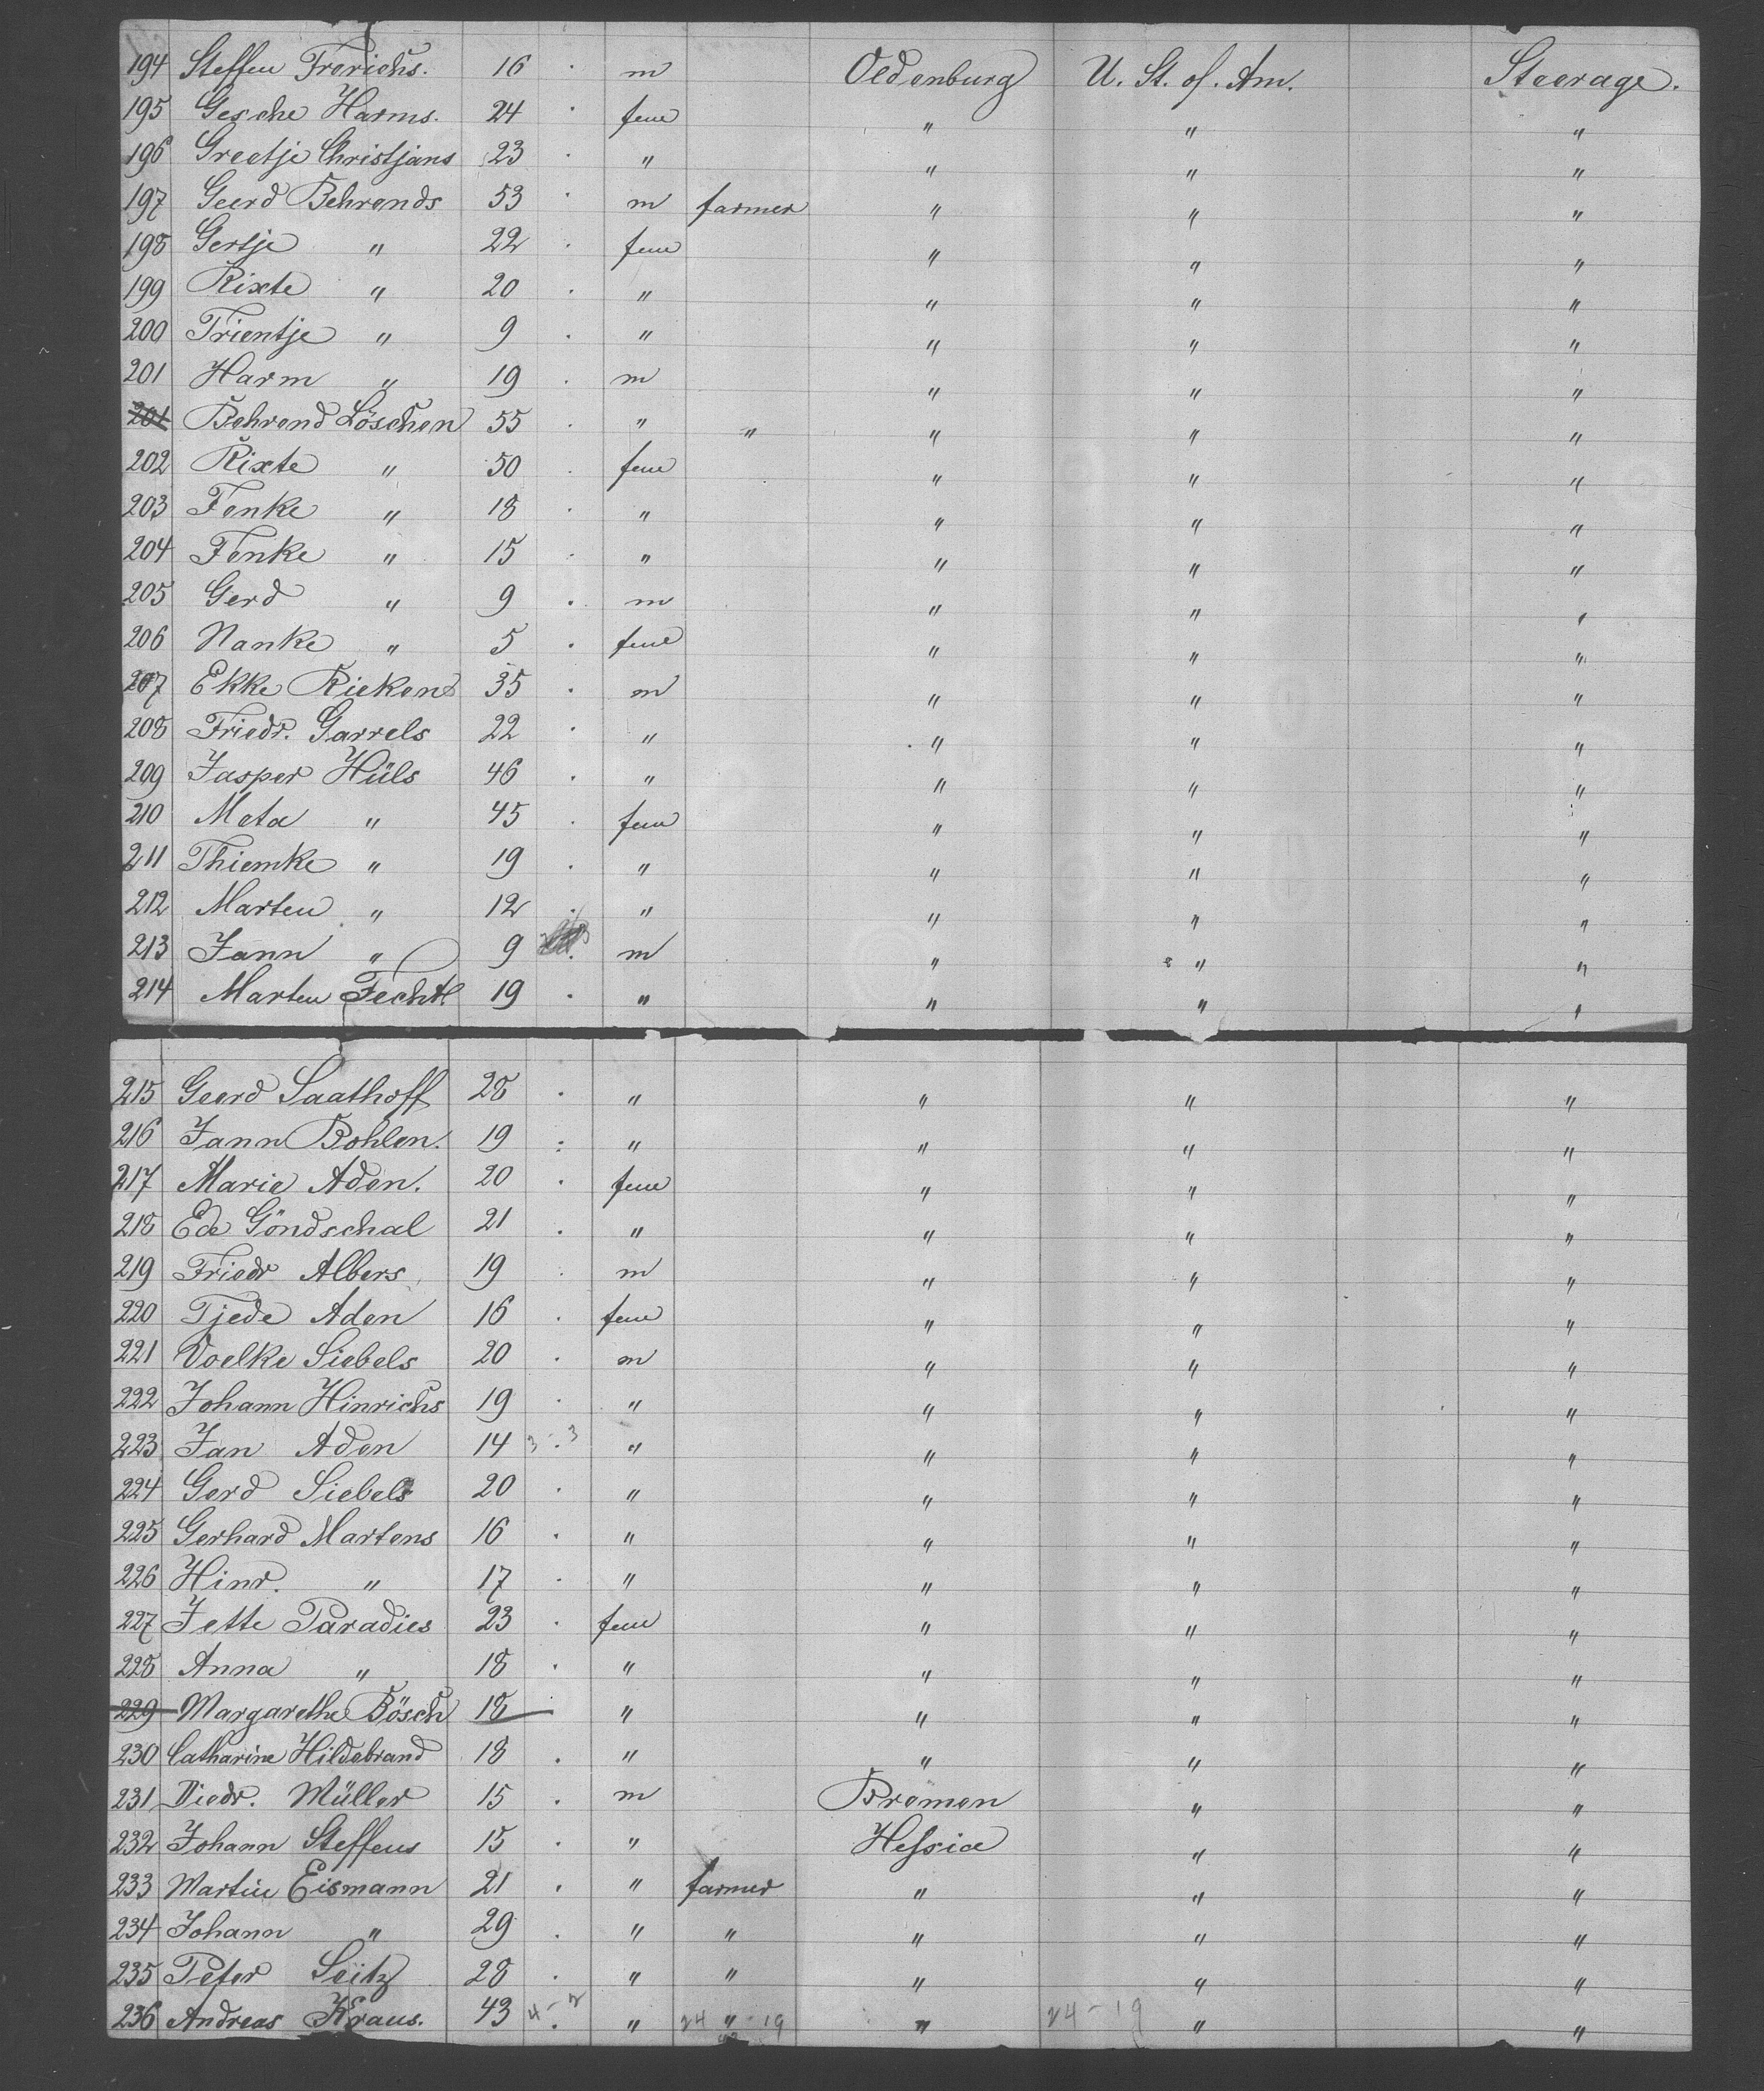 194 Steffen Frerichs. 16 . m Oldenburg U. St. of. Am. Steerage.
195 Gesche Harms. 24 . fem " " "
196 Greetje Christjans 23 . " " " "
197 Geerd Behrends 53 . m farmer " " "
198 Gertje " 22 . fem " " "
199 Rixte " 20 . " " " "
200 Trientje " 9 . " " " "
201 Harm " 19 . m " " "
201 Behrend Löschen 55 . " " " " "
202 Rixte " 50 . fem " " "
203 Fenke " 18 . " " " "
204 Fenke " 15 . " " " "
205 Gerd " 9 . m " " "
206 Nanke " 5 . fem " " "
207 Ekke Riekens 35 . m " " "
208 Friedr. Garrels 22 . " " " "
209 Jasper Hüls 46 . " " " "
210 Meta " 45 . fem " " "
211 Thiemke " 19 . " " " "
212 Marten " 12 . " " " "
213 Jann " 9 . m " " "
214 Marten Fecht 19 . " " " "
215 Geerd Saathoff 28 . " " " "
216 Jann Bohlen. 19 . " " " "
217 Marie Aden. 20 . fem " " "
218 Ede Göndschal 21 . " " " "
219 Friedr Albers 19 . m " " "
220 Tjede Aden 16 . fem " " "
221 Voelke Siebels 20 . m " " "
222 Johann Hinrichs 19 . " " " "
223 Jan Aden 14 3 - 3 " " " "
224 Gerd Siebels 20 . " " " "
225 Gerhard Martens 16 . " " " "
226 Hinr. " 17 . " " " "
227 Jette Paradies 23 . fem " " "
228 Anna " 18 . " " " "
229 Margarethe Bösch 18 " " " "
230 Catharine Hildebrand 18 . " " " "
231 Diedr. Müller 15 . m Bremen " "
232 Johann Steffens 15 . " Hessia " "
233 Martin Eismann 21 . " farmer " " "
234 Johann " 29 . " " " " "
235 Peter Seitz 28 . " " " " "
236 Andreas Kraus. 43 4 - 2 . " 24 " - 19 " 24 - 19 " "